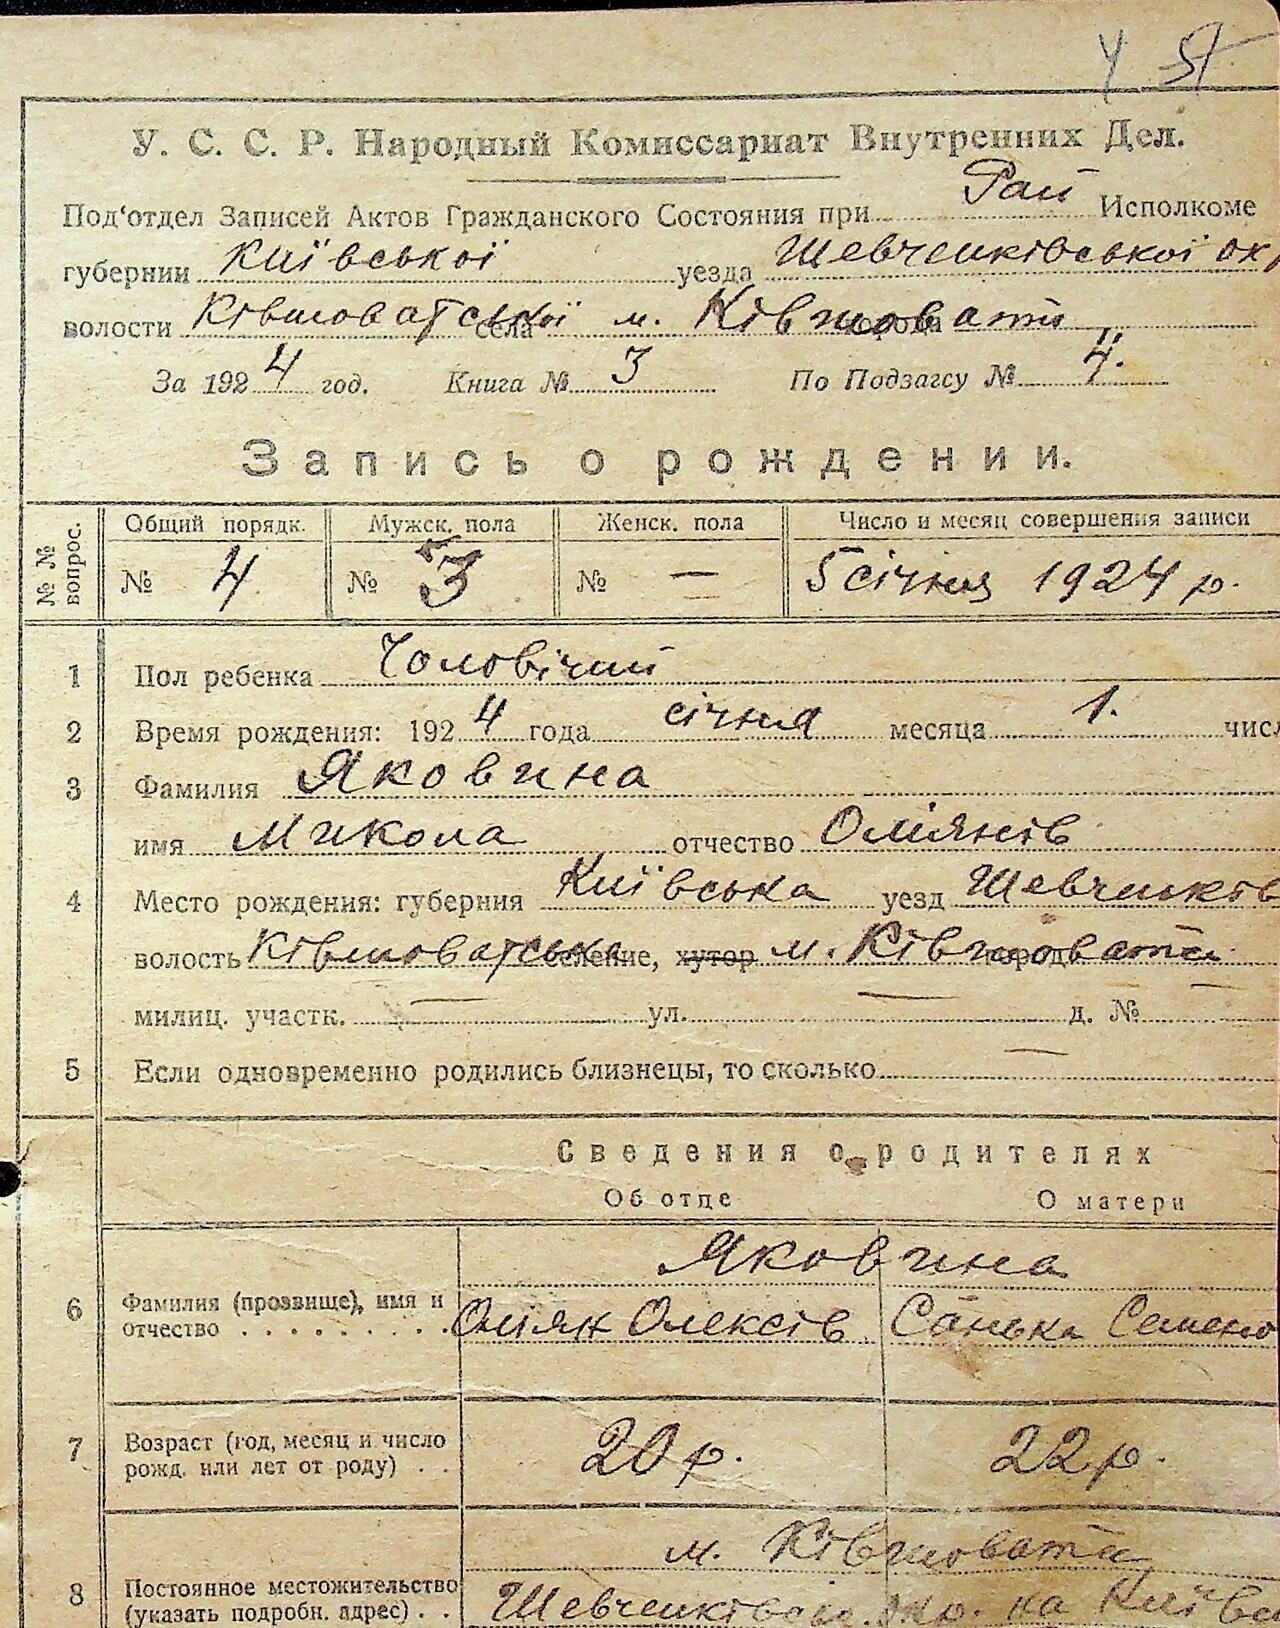 У. С. С. Р. Народный Комиссариат Внутренних Дел.
Под'отдел Записей Актов Гражданского Состояния при Рай Исполкоме
губернии Київської уезда Шевченківської окр
волости Ківшоватської села м. Ківшовати
За 1924 год. Книга № 3 По Подзагсу № 4.
Запись о рождении.
№ № вопрос. Общий порядк. Мужск. пола Женск. пола Число и месяц совершения записи
№ 4 № 3 № — 5 січня 1924 р.
1 Пол ребенка Чоловічий
2 Время рождения: 1924 года січня месяца 1. числ
3 Фамилия Яковина
имя Микола отчество Оміянів
4 Место рождения: губерния Київська уезд Шевченків
волость Ківшоватська селение, хутор м. Ківшовати
милиц. участк. — ул. — д. № —
5 Если одновременно родились близнецы, то сколько —
Сведения о родителях
Об отце О матери
Яковина
6 Фамилия (прозвище), имя и Оміян Олексів Санька Семено
отчество
7 Возраст (год, месяц и число 20 р. 22 р.
рожд. или лет от роду)
м. Ківшовати
8 Постоянное местожительство Шевченківськ. окр. на Київ
(указать подробн. адрес)